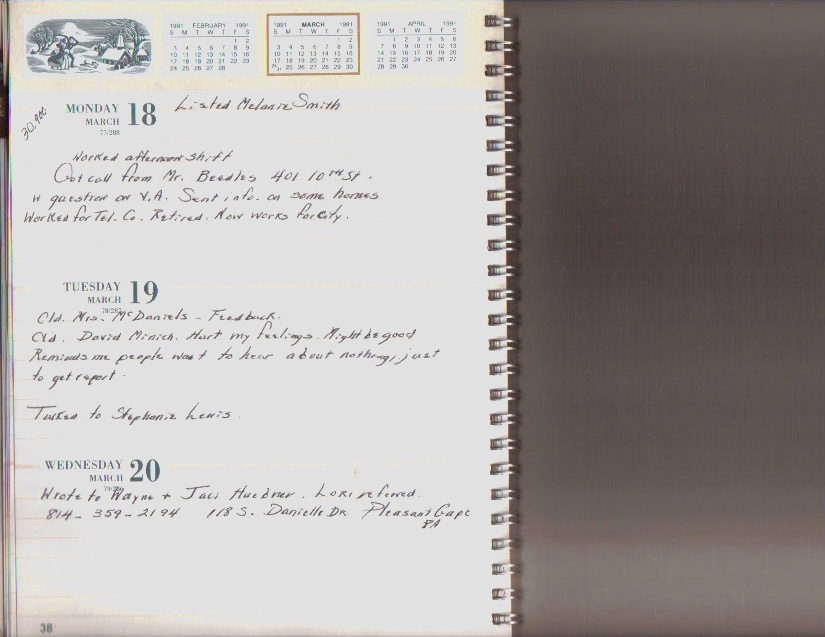 1991 FEBRUARY 1991
S M T W T F S
1 2
3 4 5 6 7 8 9
10 11 12 13 14 15 16
17 18 19 20 21 22 23
24 25 26 27 28
1991 MARCH 1991
S M T W T F S
1 2
3 4 5 6 7 8 9
10 11 12 13 14 15 16
17 18 19 20 21 22 23
24/31 25 26 27 28 29 30
1991 APRIL 1991
S M T W T F S
1 2 3 4 5 6
7 8 9 10 11 12 13
14 15 16 17 18 19 20
21 22 23 24 25 26 27
28 29 30
30,900
MONDAY 18 Listed Melanie Smith
MARCH
77/288
Worked afternoon shift
Got call from Mr. Beedles 401 10th St.
w question on V.A. Sent info. on some homes
Worked for Tel. Co. Retired. Now works for City.
TUESDAY 19
MARCH
78/287
Cld. Mrs. McDaniels - Feedback.
Cld. David Minich. Hurt my feelings. Might be good
Reminds me people want to hear about nothing, just
to get report.
Talked to Stephanie Lewis.
WEDNESDAY 20
MARCH
79/286
Wrote to Wayne + Jaci Huebner. Lori referred.
814-359-2194 118 S. Danielle Dr Pleasant Gap
PA
38